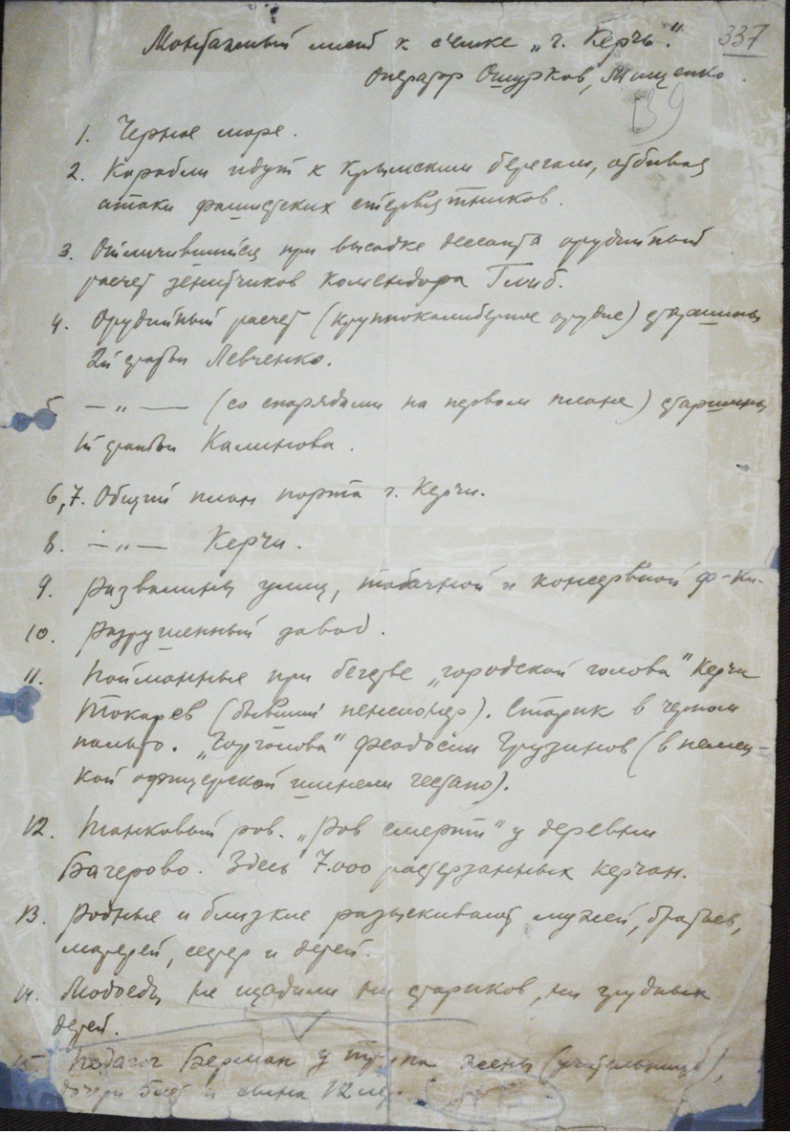 Монтажный лист к съемке „г. Керчь".
337
Оператор Ошурков, Мищенко.
39
1. Черное море.
2. Корабли идут к крымским берегам, отбивая
атаки фашистских стервятников.
3. Отличившийся при высадке десанта орудийный
расчет зенитчиков комендора Глиб.
4. Орудийный расчет (крупнокалиберное орудие) старшины
2й статьи Левченко.
5 — „ — (со снарядами на первом плане) старшины
1й статьи Калинова.
6,7. Общий план порта г. Керчи.
8. — „ — Керчи.
9. Развалины улиц, табачной и консервной ф-ки.
10. Разрушенный завод.
11. Пойманные при бегстве „городской голова" Керчи
Токарев (бывший пенсионер). Старик в черном
пальто. „Горголова" Феодосии Грузинов (в немец-
кой офицерской шинели гестапо).
12. Танковый ров. „Ров смерти" у деревни
Багерово. Здесь 7.000 растерзанных керчан.
13. Родные и близкие разыскивают мужей, братьев,
матерей, сестер и детей.
14. Людоеды не щадили ни стариков, ни грудных
детей.
15. Педагог Берман у трупа жены (учительницы),
дочери 5 лет и сына 12 лет.